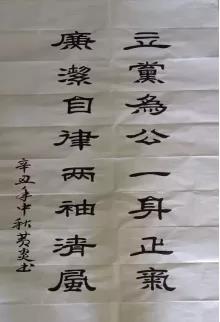 立黨為公一身正氣
廉潔自律两袖清風
辛丑年中秋黄炎书